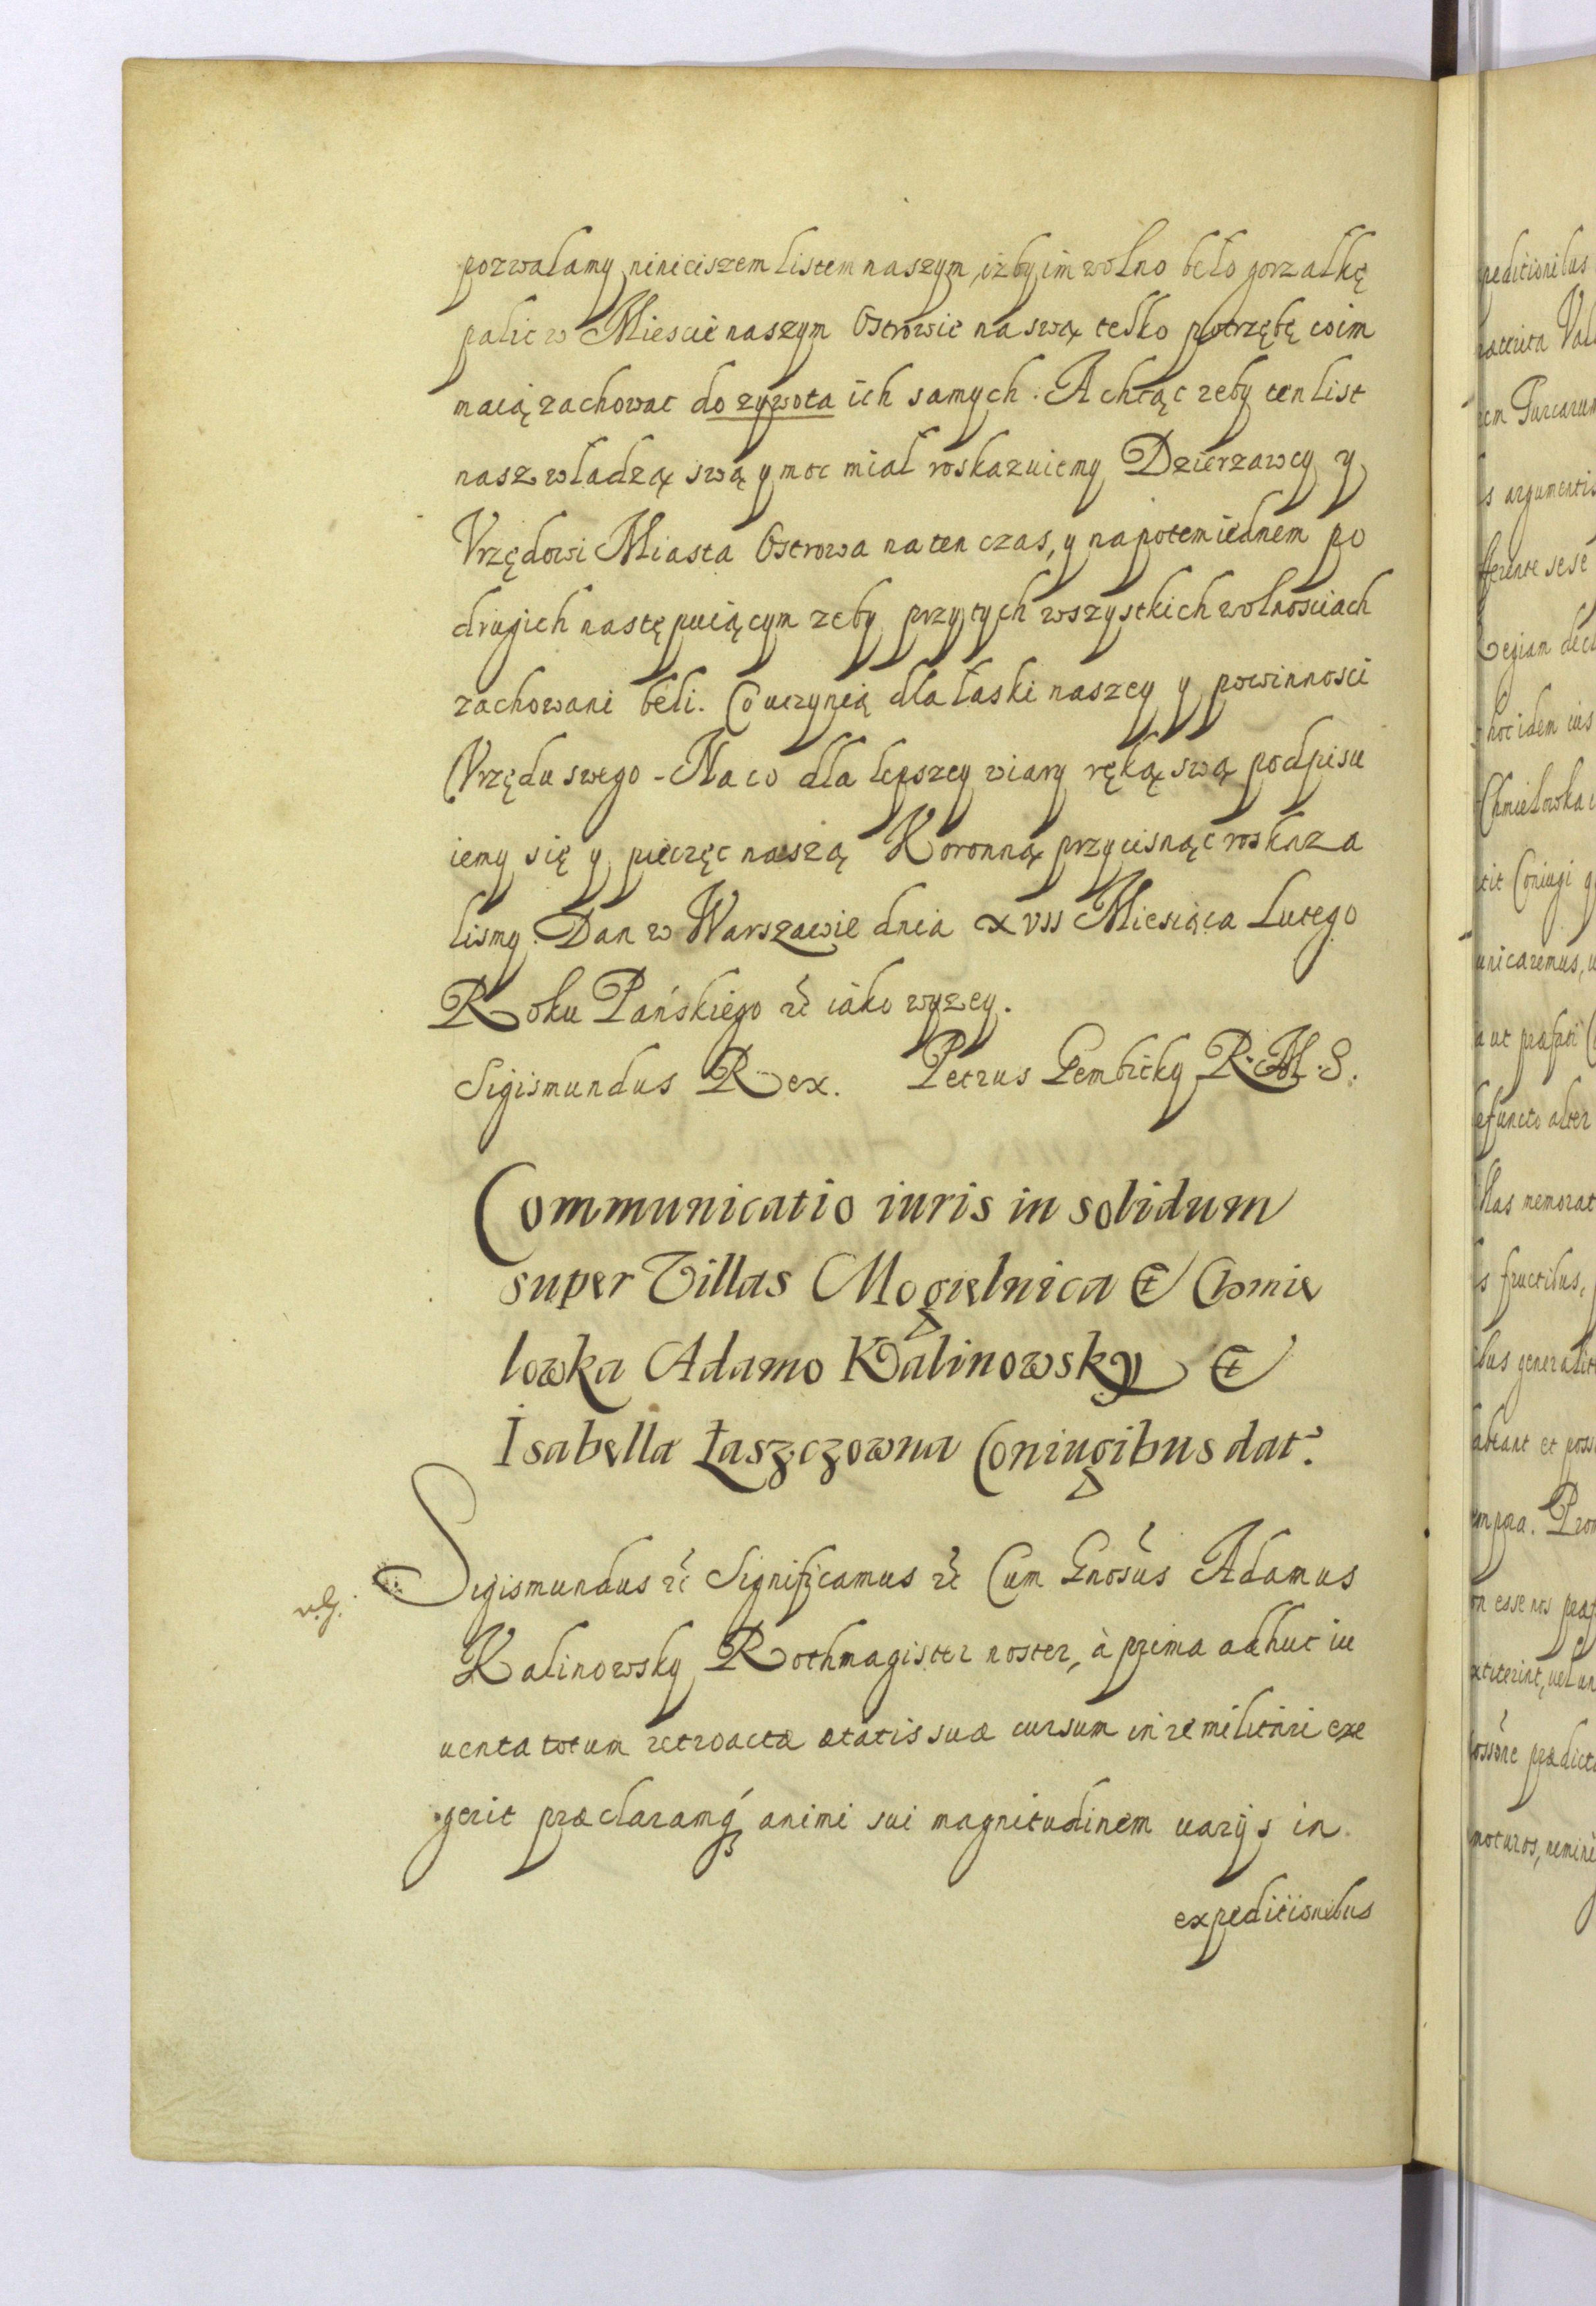 pozwalamy ninieiszem listem naszym, iżby im wolno beło gorzałkę
palic w Miescie naszym Ostrowie na swą telko potrzębę co im
maią zachować do zywota ich samych. A chcąc zeby ten list
nasz władzą swą y moc miał roskazuiemy Dzierzawcy y
Vrzędowi Miasta Ostrowa na ten czas, y napotem iednem po
drugich następuiącym zeby przy tych wszystkich wolnosciach
zachowani beli. Co uczynią dla łaski naszey y powinnosci
Vrzędu swego - Na co dla lepszey wiary ręką swą podpisu
iemy się y pieczęc naszą Koronną przycisnąc roskaza
lismy. Dan w Warszawie dnia XVII Miesiąca Lutego
Roku Pańskiego etc iako wyzey.
Sigismundus Rex. Petrus Gembicky R. M. S.
Communicatio iuris in solidum
super Villas Mogielnica Et Chmie
lowka Adamo Kalinowsky Et
Isabella Łaszczowna Coniugibus dat.
Sigismundus etc Significamus etc Cum Gnosus Adamus
Kalinowsky Rothmagister noster, à prima adhuc iu
uenta totum retroactæ ætatis suæ cursum in re militari exe
gerit præclaramq animi sui magnitudinem uarijs in
expeditionibus
peditionibus
rem Turcarum
s argumentis
hoc idem ius
Chmielowka
tit Coniugi
unicaremus,
a ut præfati
efuncto alter
illas memorat
s fructibus,
ibus
abeant et
on esse nos
ossone prædict
moturos,